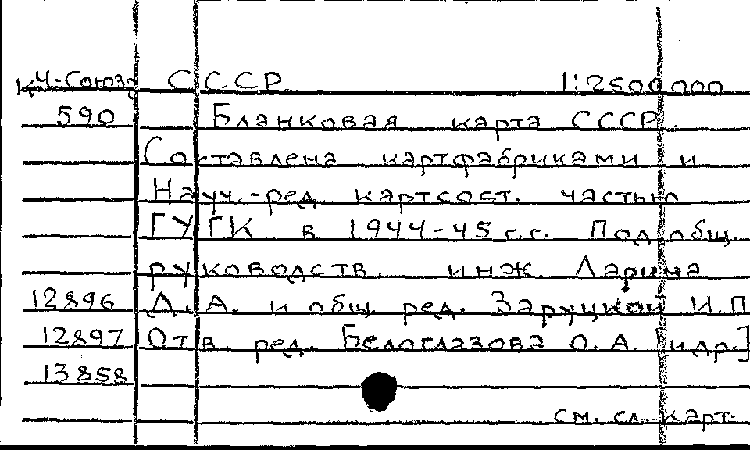 КЧ-Союз СССР 1:2500000
590 Бланковая карта СССР
Составлена картфабриками и
Науч.-ред. картсост. частью
ГУГК в 1944-45 г.г. Под общ.
руководств. инж. Ларина
12896 Д. А. и общ. ред. Заруцкой И.П
12897 Отв. ред. Белоглазова О. А. [и др.]
13858
см. сл. карт.